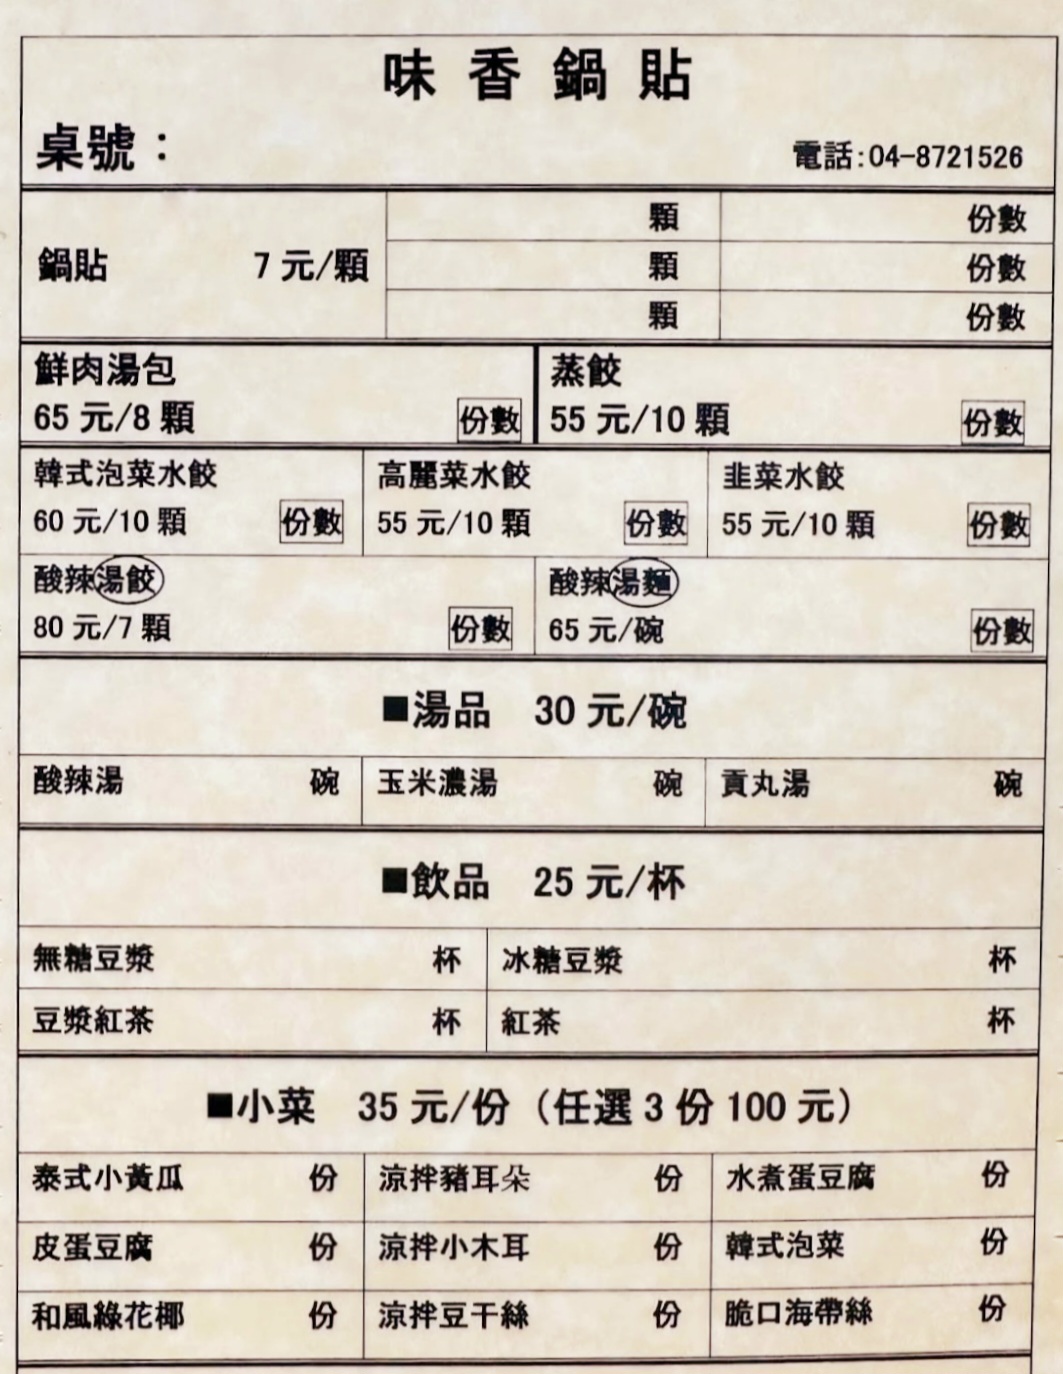 味香鍋貼
桌號：
電話:04-8721526
鍋貼 7元/顆
顆 份數
顆 份數
顆 份數
鮮肉湯包
65元/8顆 份數
蒸餃
55元/10顆 份數
韓式泡菜水餃
60元/10顆 份數
高麗菜水餃
55元/10顆 份數
韭菜水餃
55元/10顆 份數
酸辣湯餃
80元/7顆 份數
酸辣湯麵
65元/碗 份數
■湯品 30元/碗
酸辣湯 碗 玉米濃湯 碗 貢丸湯 碗
■飲品 25元/杯
無糖豆漿 杯 冰糖豆漿 杯
豆漿紅茶 杯 紅茶 杯
■小菜 35元/份（任選3份100元）
泰式小黃瓜 份 涼拌豬耳朵 份 水煮蛋豆腐 份
皮蛋豆腐 份 涼拌小木耳 份 韓式泡菜 份
和風綠花椰 份 涼拌豆干絲 份 脆口海帶絲 份